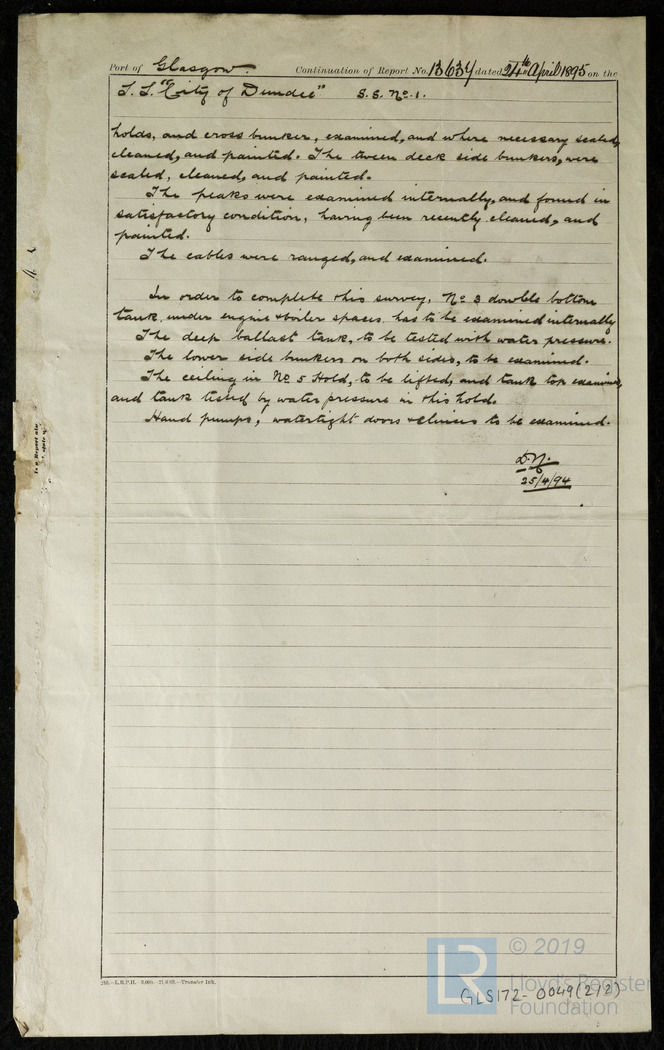 Port of Glasgow. Continuation of Report No. 13634 dated 24th April 1895 on the
S.S. "City of Dundee" S.S. No. 1.
holds, and cross bunker, examined, and where necessary scaled,
cleaned, and painted. The tween deck side bunkers, were
scaled, cleaned, and painted.
The peaks were examined internally, and found in
satisfactory condition, having been recently cleaned, and
painted.
The cables were ranged, and examined.
In order to complete this survey. No 3 double bottom
tank under engine & boiler spaces has to be examined internally
The deep ballast tank, to be tested with water pressure.
The lower side bunkers on both sides, to be examined.
The ceiling in No 5 Hold, to be lifted, and tank top examined,
and tank tested by water pressure in this hold.
Hand pumps, watertight doors & sluices to be examined.
25/4/94
210.—L.R.P.H. Transfer Ink.
LR © 2019
Lloyd's Register
Foundation
GLS172-0049(2/2)